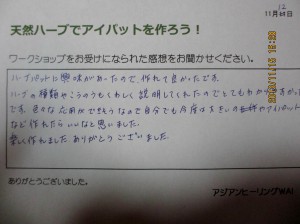 11月12日
天然ハーブでアイパットを作ろう！
ワークショップをお受けになられた感想をお聞かせください。
ハーブパットに興味があったので、作れて良かったです。
ハーブの種類やこうのうもくわしく説明してくれたのでとてもわかりやすかった
です。色々な応用ができそうなので自分でも今度は大きいの
など作れたらいいなと思いました。
楽しく作れました ありがとうございました。
ありがとうございました。
アジアンヒーリングWAL